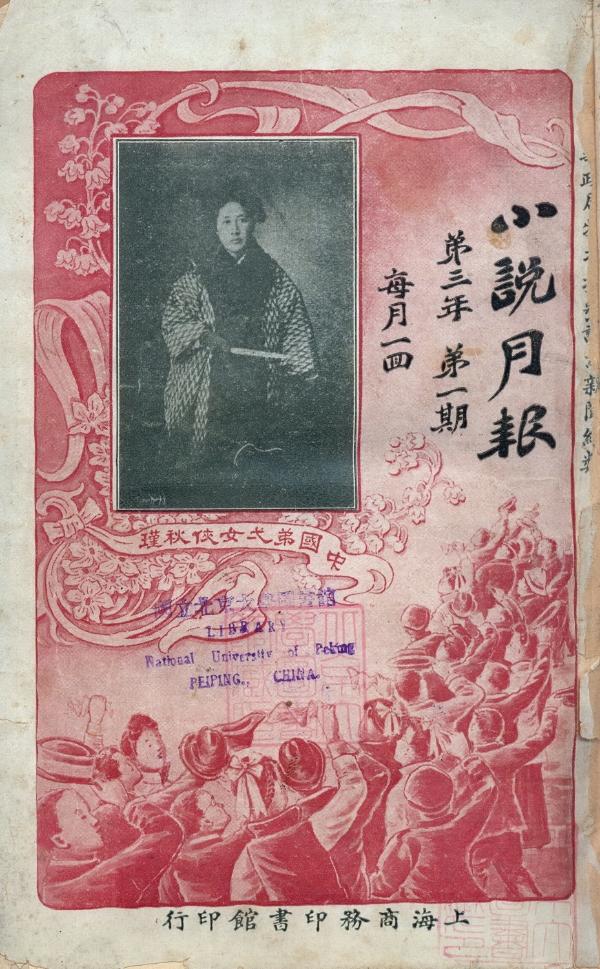 小說月報
第三年 第一期
每月一回
中國弟弌女俠秋瑾
國立北京大學圖書館
LIBRARY
National University of Peking
PEIPING., CHINA.
上海商務印書館印行